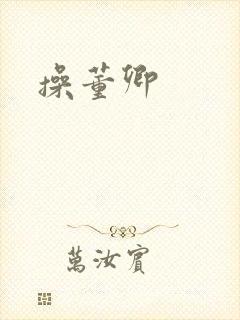 操董卿
萬汝賓